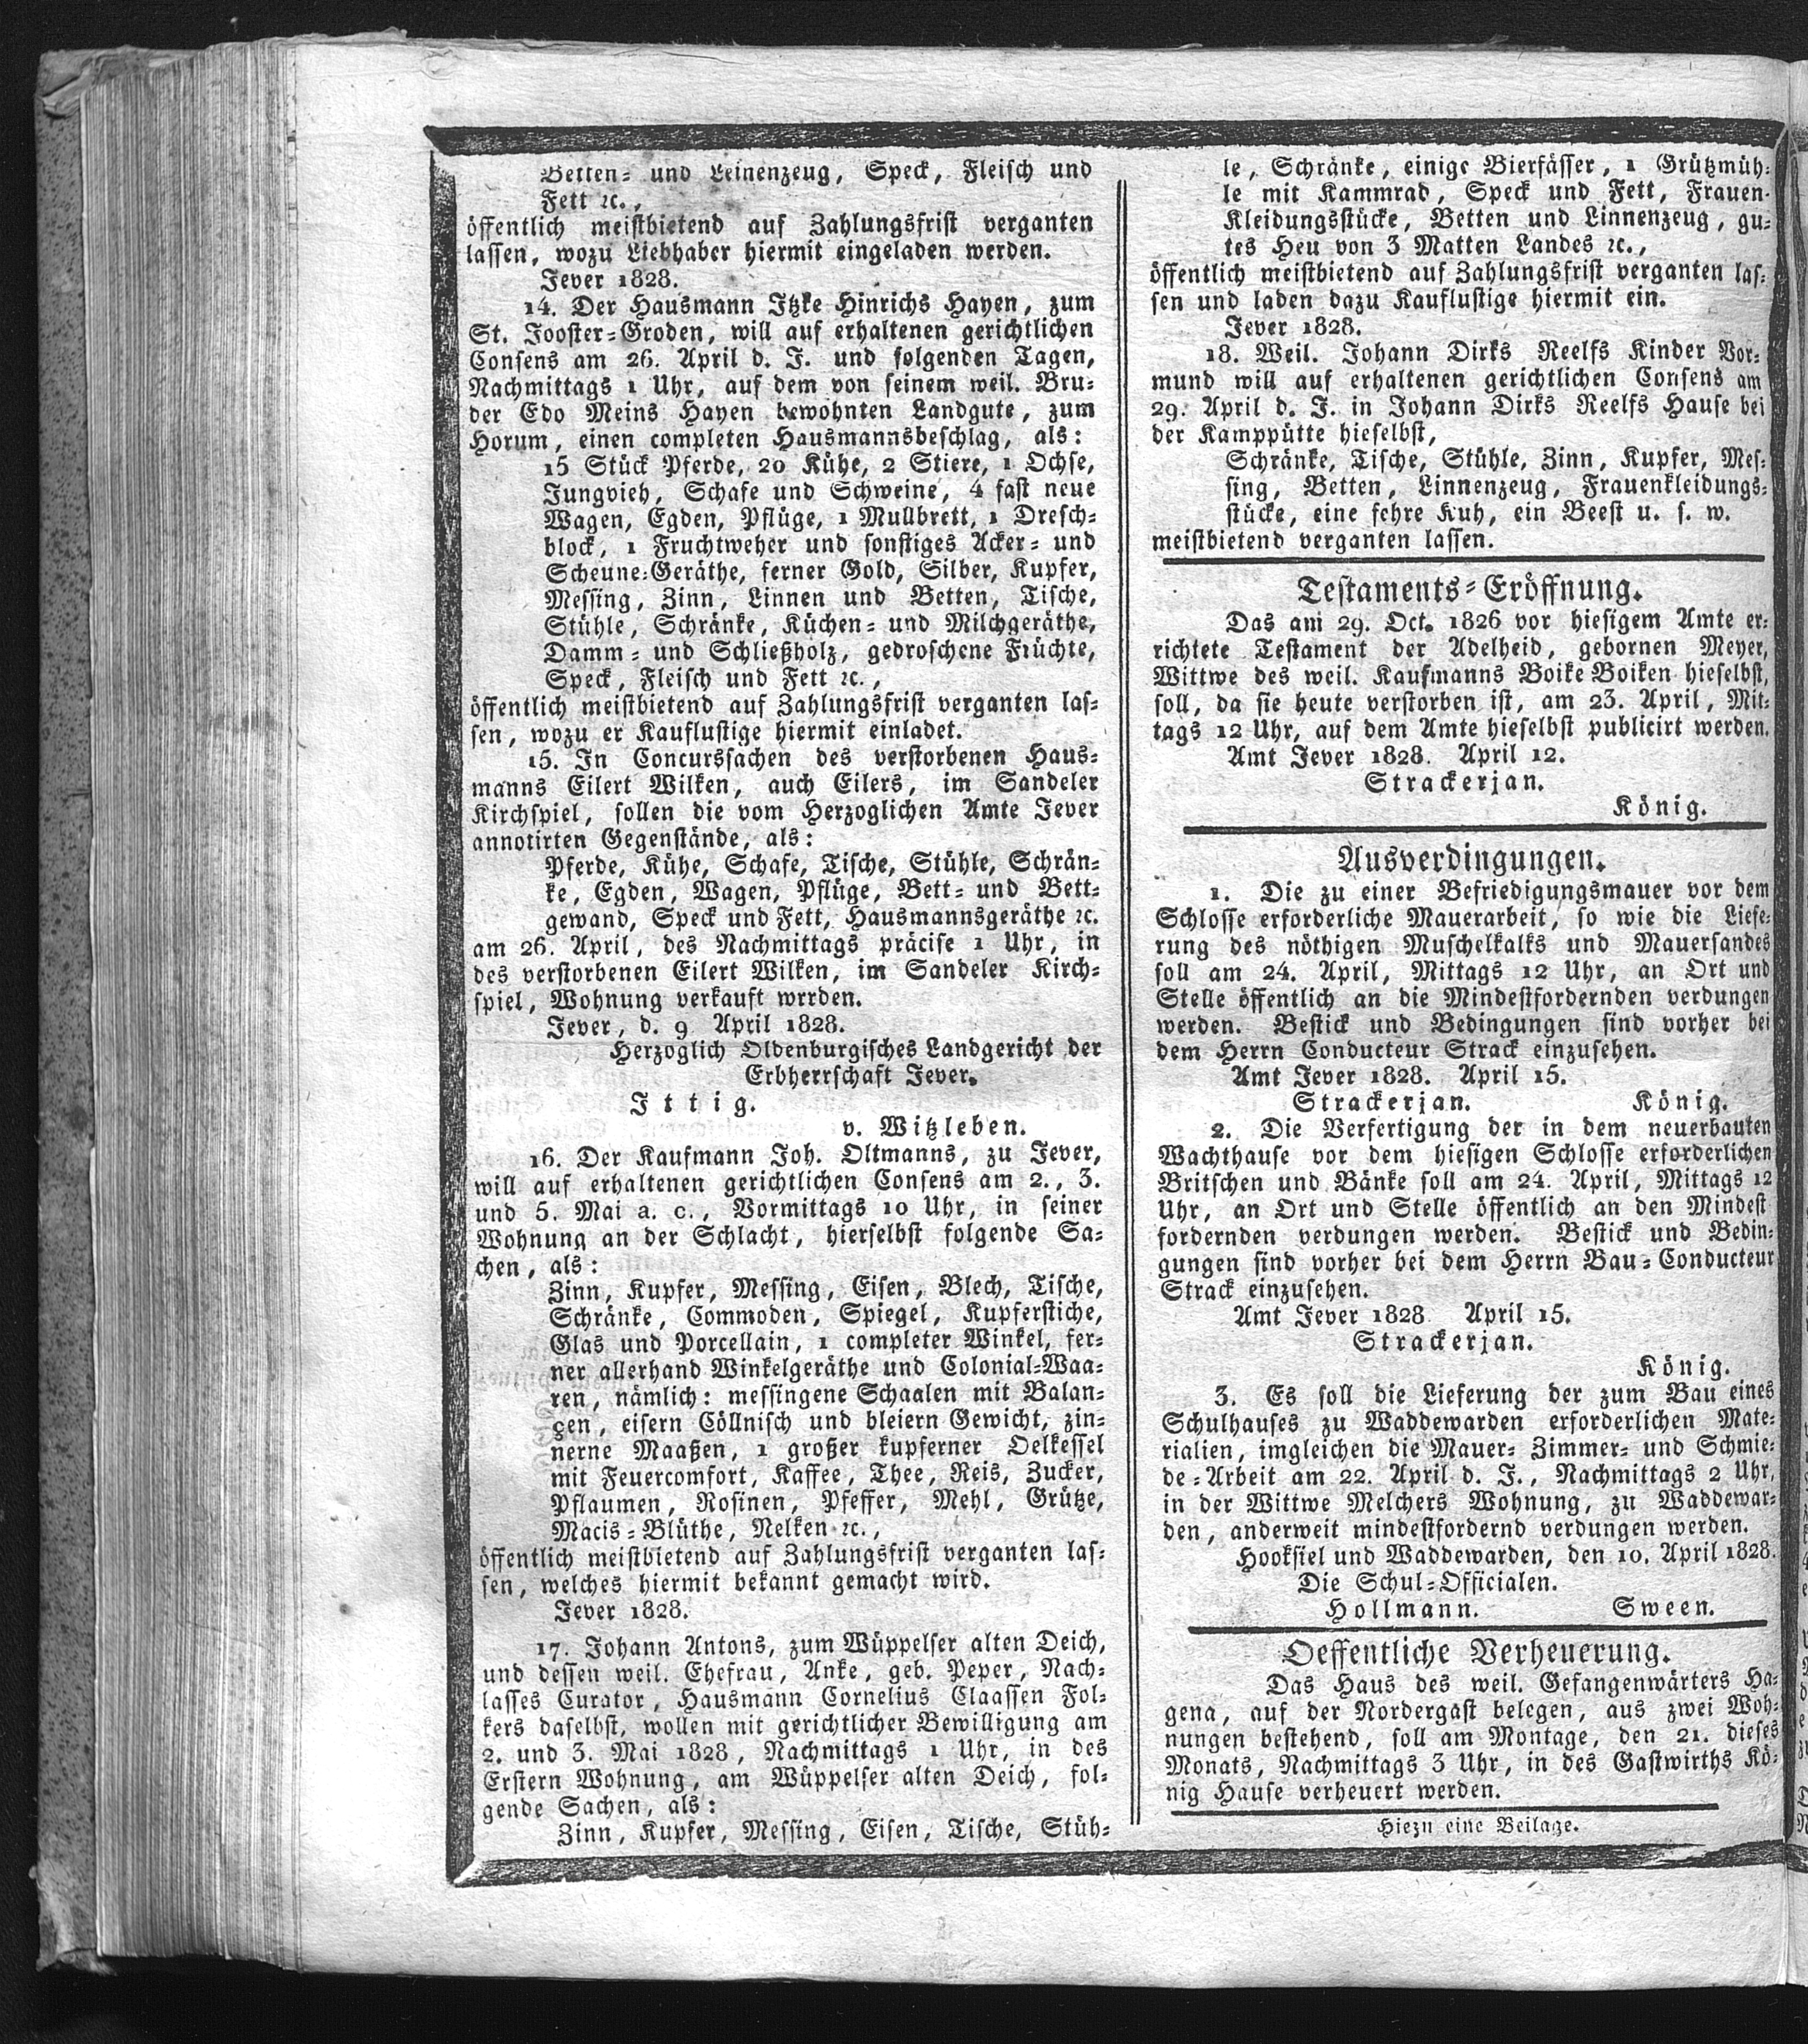 Betten- und Leinenzeug, Speck, Fleisch und
Fett ꝛc.,
öffentlich meistbietend auf Zahlungsfrist verganten
lassen, wozu Liebhaber hiermit eingeladen werden.
Jever 1828.
14. Der Hausmann Itzke Hinrichs Hayen, zum
St. Jooster-Groden, will auf erhaltenen gerichtlichen
Consens am 26. April d. J. und folgenden Tagen,
Nachmittags 1 Uhr, auf dem von seinem weil. Bru-
der Edo Meins Hayen bewohnten Landgute, zum
Horum, einen completen Hausmannsbeschlag, als:
15 Stück Pferde, 20 Kühe, 2 Stiere, 1 Ochse,
Jungvieh, Schafe und Schweine, 4 fast neue
Wagen, Egden, Pflüge, 1 Mullbrett, 1 Dresch-
block, 1 Fruchtweher und sonstiges Acker- und
Scheune-Geräthe, ferner Gold, Silber, Kupfer,
Messing, Zinn, Linnen und Betten, Tische,
Stühle, Schränke, Küchen- und Milchgeräthe,
Damm- und Schließholz, gedroschene Früchte,
Speck, Fleisch und Fett ꝛc.,
öffentlich meistbietend auf Zahlungsfrist verganten las-
sen, wozu er Kauflustige hiermit einladet.
15. In Concurssachen des verstorbenen Haus-
manns Eilert Wilken, auch Eilers, im Sandeler
Kirchspiel, sollen die vom Herzoglichen Amte Jever
annotirten Gegenstände, als:
Pferde, Kühe, Schafe, Tische, Stühle, Schrän-
ke, Egden, Wagen, Pflüge, Bett- und Bett-
gewand, Speck und Fett, Hausmannsgeräthe ꝛc.
am 26. April, des Nachmittags präcise 1 Uhr, in
des verstorbenen Eilert Wilken, im Sandeler Kirch-
spiel, Wohnung verkauft werden.
Jever, d. 9 April 1828.
Herzoglich Oldenburgisches Landgericht der
Erbherrschaft Jever.
Ittig.
v. Witzleben.
16. Der Kaufmann Joh. Oltmanns, zu Jever,
will auf erhaltenen gerichtlichen Consens am 2., 3.
und 5. Mai a. c., Vormittags 10 Uhr, in seiner
Wohnung an der Schlacht, hierselbst folgende Sa-
chen, als:
Zinn, Kupfer, Messing, Eisen, Blech, Tische,
Schränke, Commoden, Spiegel, Kupferstiche,
Glas und Porcellain, 1 completer Winkel, fer-
ner allerhand Winkelgeräthe und Colonial-Waa-
ren, nämlich: messingene Schaalen mit Balan-
gen, eisern Cöllnisch und bleiern Gewicht, zin-
nerne Maaßen, 1 großer kupferner Oelkessel
mit Feuercomfort, Kaffee, Thee, Reis, Zucker,
Pflaumen, Rosinen, Pfeffer, Mehl, Grütze,
Macis-Blüthe, Nelken ꝛc.,
öffentlich meistbietend auf Zahlungsfrist verganten las-
sen, welches hiermit bekannt gemacht wird.
Jever 1828.
17. Johann Antons, zum Wüppelser alten Deich,
und dessen weil. Ehefrau, Anke, geb. Peper, Nach-
lasses Curator, Hausmann Cornelius Claassen Fol-
kers daselbst, wollen mit gerichtlicher Bewilligung am
2. und 3. Mai 1828, Nachmittags 1 Uhr, in des
Erstern Wohnung, am Wüppelser alten Deich, fol-
gende Sachen, als:
Zinn, Kupfer, Messing, Eisen, Tische, Stüh-
le, Schränke, einige Bierfässer, 1 Grützmüh-
le mit Kammrad, Speck und Fett, Frauen-
Kleidungsstücke, Betten und Linnenzeug, gu-
tes Heu von 3 Matten Landes ꝛc.,
öffentlich meistbietend auf Zahlungsfrist verganten las-
sen und laden dazu Kauflustige hiermit ein.
Jever 1828.
18. Weil. Johann Dirks Reelfs Kinder Vor-
mund will auf erhaltenen gerichtlichen Consens am
29. April d. J. in Johann Dirks Reelfs Hause bei
der Kamppütte hieselbst,
Schränke, Tische, Stühle, Zinn, Kupfer, Mes-
sing, Betten, Linnenzeug, Frauenkleidungs-
stücke, eine fehre Kuh, ein Beest u. s. w.
meistbietend verganten lassen.
Testaments-Eröffnung.
Das am 29. Oct. 1826 vor hiesigem Amte er-
richtete Testament der Adelheid, gebornen Meyer,
Wittwe des weil. Kaufmanns Boike Boiken hieselbst,
soll, da sie heute verstorben ist, am 23. April, Mit-
tags 12 Uhr, auf dem Amte hieselbst publicirt werden.
Amt Jever 1828. April 12.
Strackerjan.
König.
Ausverdingungen.
1. Die zu einer Befriedigungsmauer vor dem
Schlosse erforderliche Mauerarbeit, so wie die Liefe-
rung des nöthigen Muschelkalks und Mauersandes
soll am 24. April, Mittags 12 Uhr, an Ort und
Stelle öffentlich an die Mindestfordernden verdungen
werden. Bestick und Bedingungen sind vorher bei
dem Herrn Conducteur Strack einzusehen.
Amt Jever 1828. April 15.
Strackerjan. König.
2. Die Verfertigung der in dem neuerbauten
Wachthause vor dem hiesigen Schlosse erforderlichen
Britschen und Bänke soll am 24. April, Mittags 12
Uhr, an Ort und Stelle öffentlich an den Mindest
fordernden verdungen werden. Bestick und Bedin-
gungen sind vorher bei dem Herrn Bau-Conducteur
Strack einzusehen.
Amt Jever 1828 April 15.
Strackerjan.
König.
3. Es soll die Lieferung der zum Bau eines
Schulhauses zu Waddewarden erforderlichen Mate-
rialien, imgleichen die Mauer- Zimmer- und Schmie-
de-Arbeit am 22. April d. J., Nachmittags 2 Uhr,
in der Wittwe Melchers Wohnung, zu Waddewar-
den, anderweit mindestfordernd verdungen werden.
Hooksiel und Waddewarden, den 10. April 1828.
Die Schul-Officialen.
Hollmann. Sween.
Oeffentliche Verheuerung.
Das Haus des weil. Gefangenwärters Ha-
gena, auf der Nordergast belegen, aus zwei Woh-
nungen bestehend, soll am Montage, den 21. dieses
Monats, Nachmittags 3 Uhr, in des Gastwirths Kö-
nig Hause verheuert werden.
Hiezu eine Beilage.